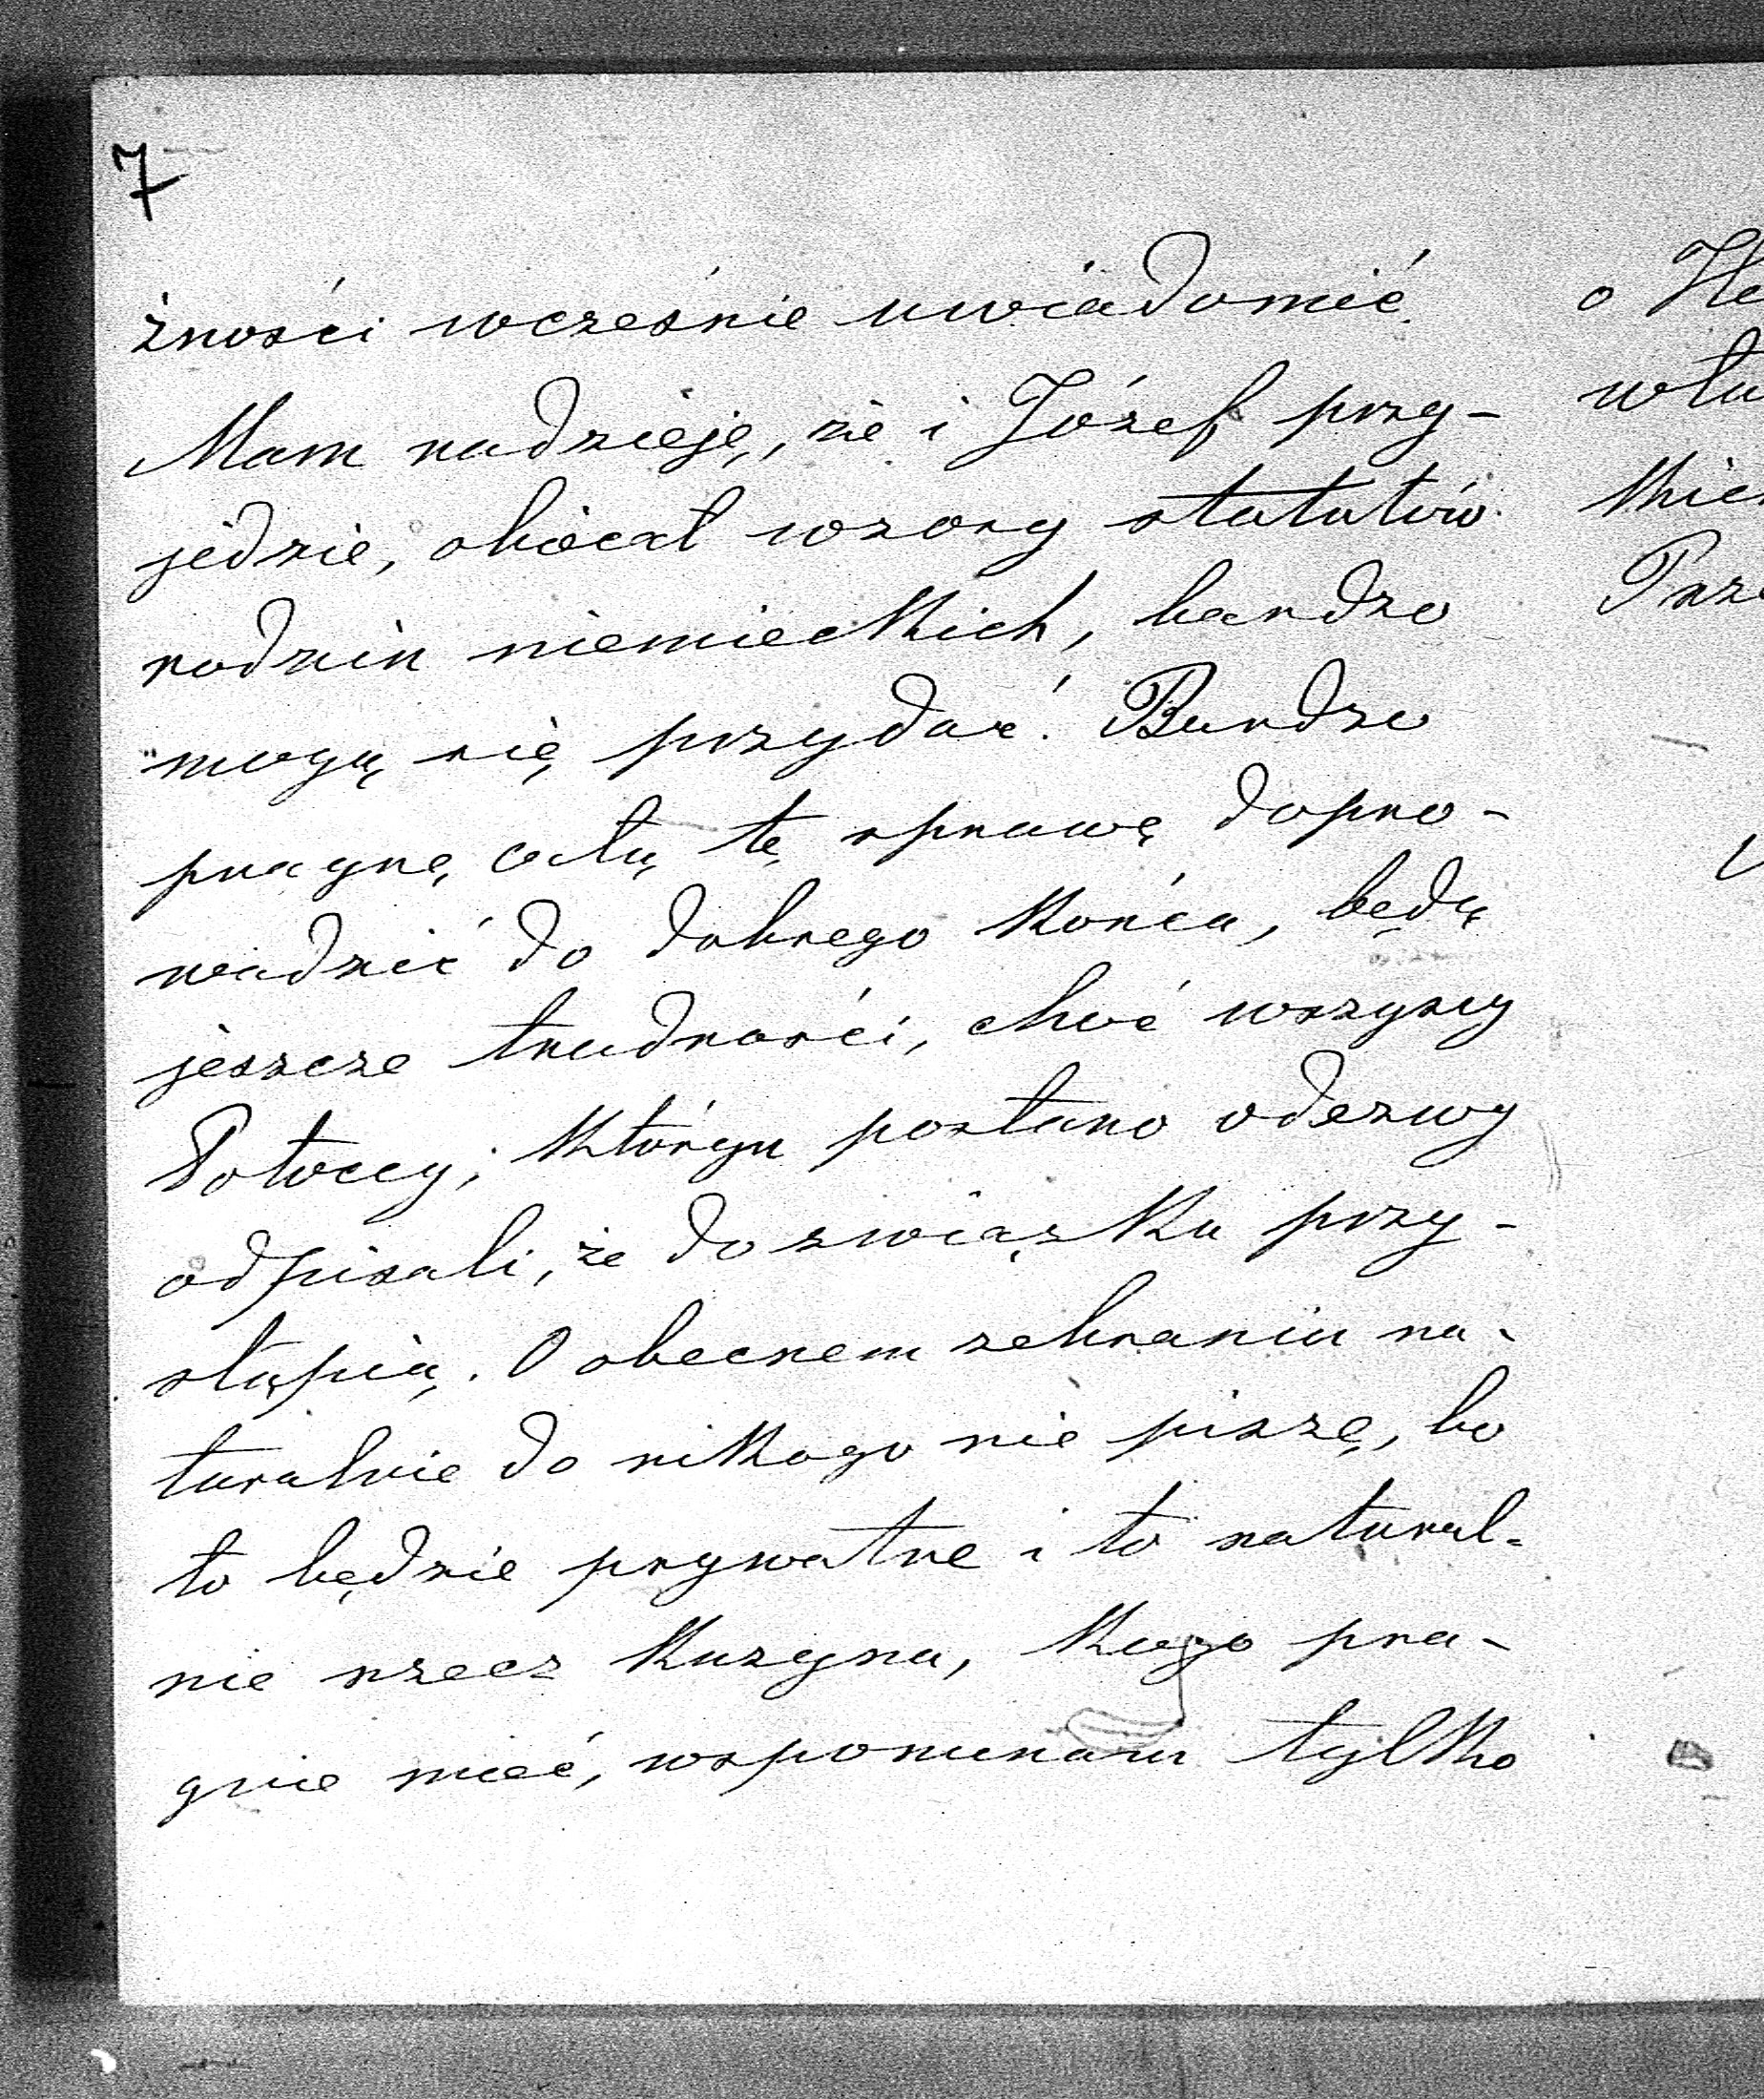 7
żności wcześnie uwiadomić.
Mam nadzieję, że i Józef przy-
jedzie, obiecał wzory statutów
rodzin niemieckich, bardzo
mogą się przydać. Bardzo
pragnę całą tę sprawę dopro-
wadzić do dobrego końca, będą
jeszcze trudności, choć wszyscy
Potoccy, którym posłano odezwy
odpisali, że do związku przy-
stąpią. O obecnem zebraniu na-
turalnie do nikogo nie piszę, bo
to będzie prywatne i to natural-
nie rzecz Kuzyna, Kogo pra-
gnie mieć, wspominam tylko